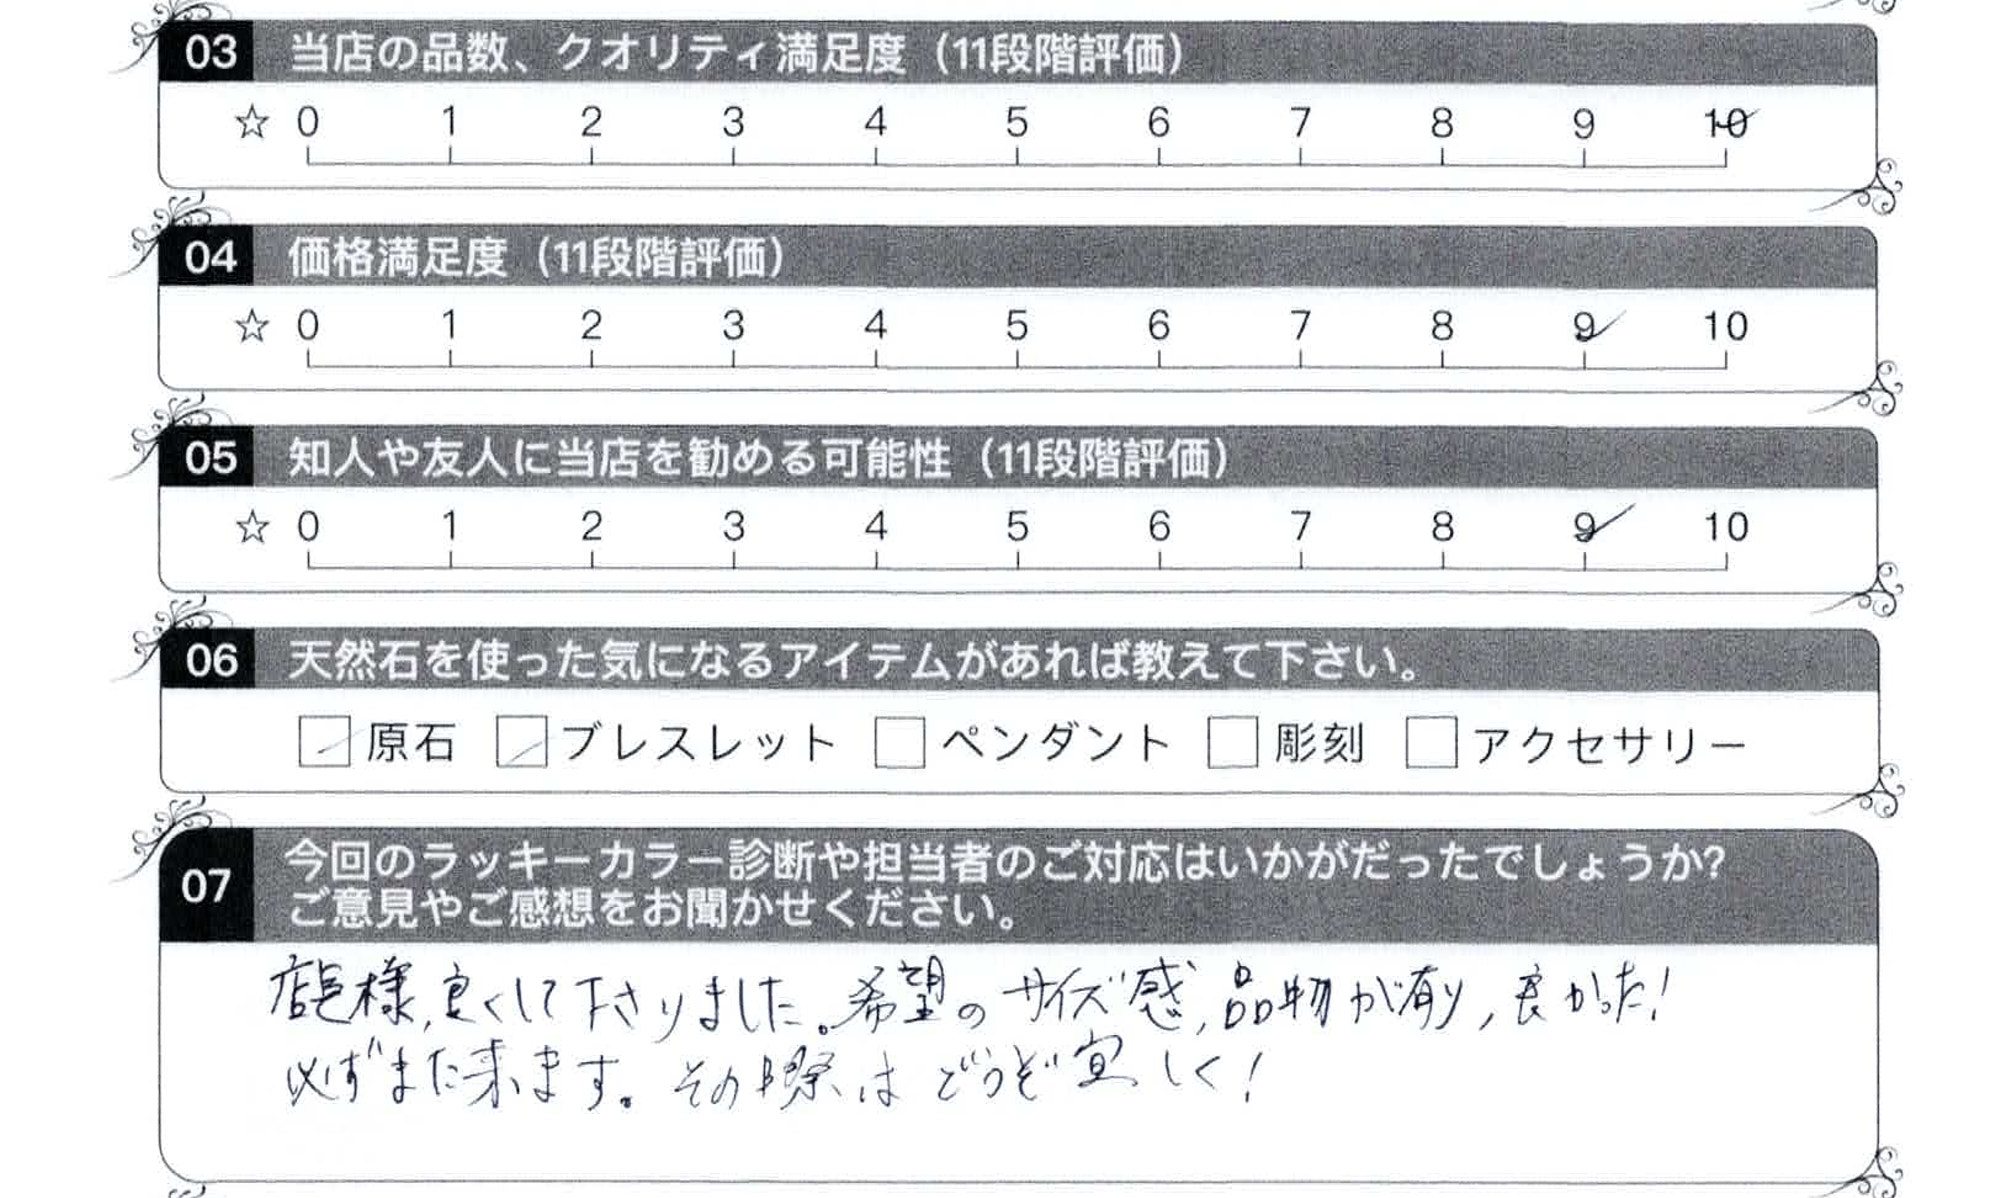 03 当店の品数、クオリティ満足度（11段階評価）
☆ 0 1 2 3 4 5 6 7 8 9 10
04 価格満足度（11段階評価）
☆ 0 1 2 3 4 5 6 7 8 9 10
05 知人や友人に当店を勧める可能性（11段階評価）
☆ 0 1 2 3 4 5 6 7 8 9 10
06 天然石を使った気になるアイテムがあれば教えて下さい。
原石 ブレスレット ペンダント 彫刻 アクセサリー
07 今回のラッキーカラー診断や担当者のご対応はいかがだったでしょうか?
ご意見やご感想をお聞かせください。
店長様、良くして下さりました。希望のサイズ感、品物が有り、良かった!
必ずまた来ます。その際はどうぞ宜しく!